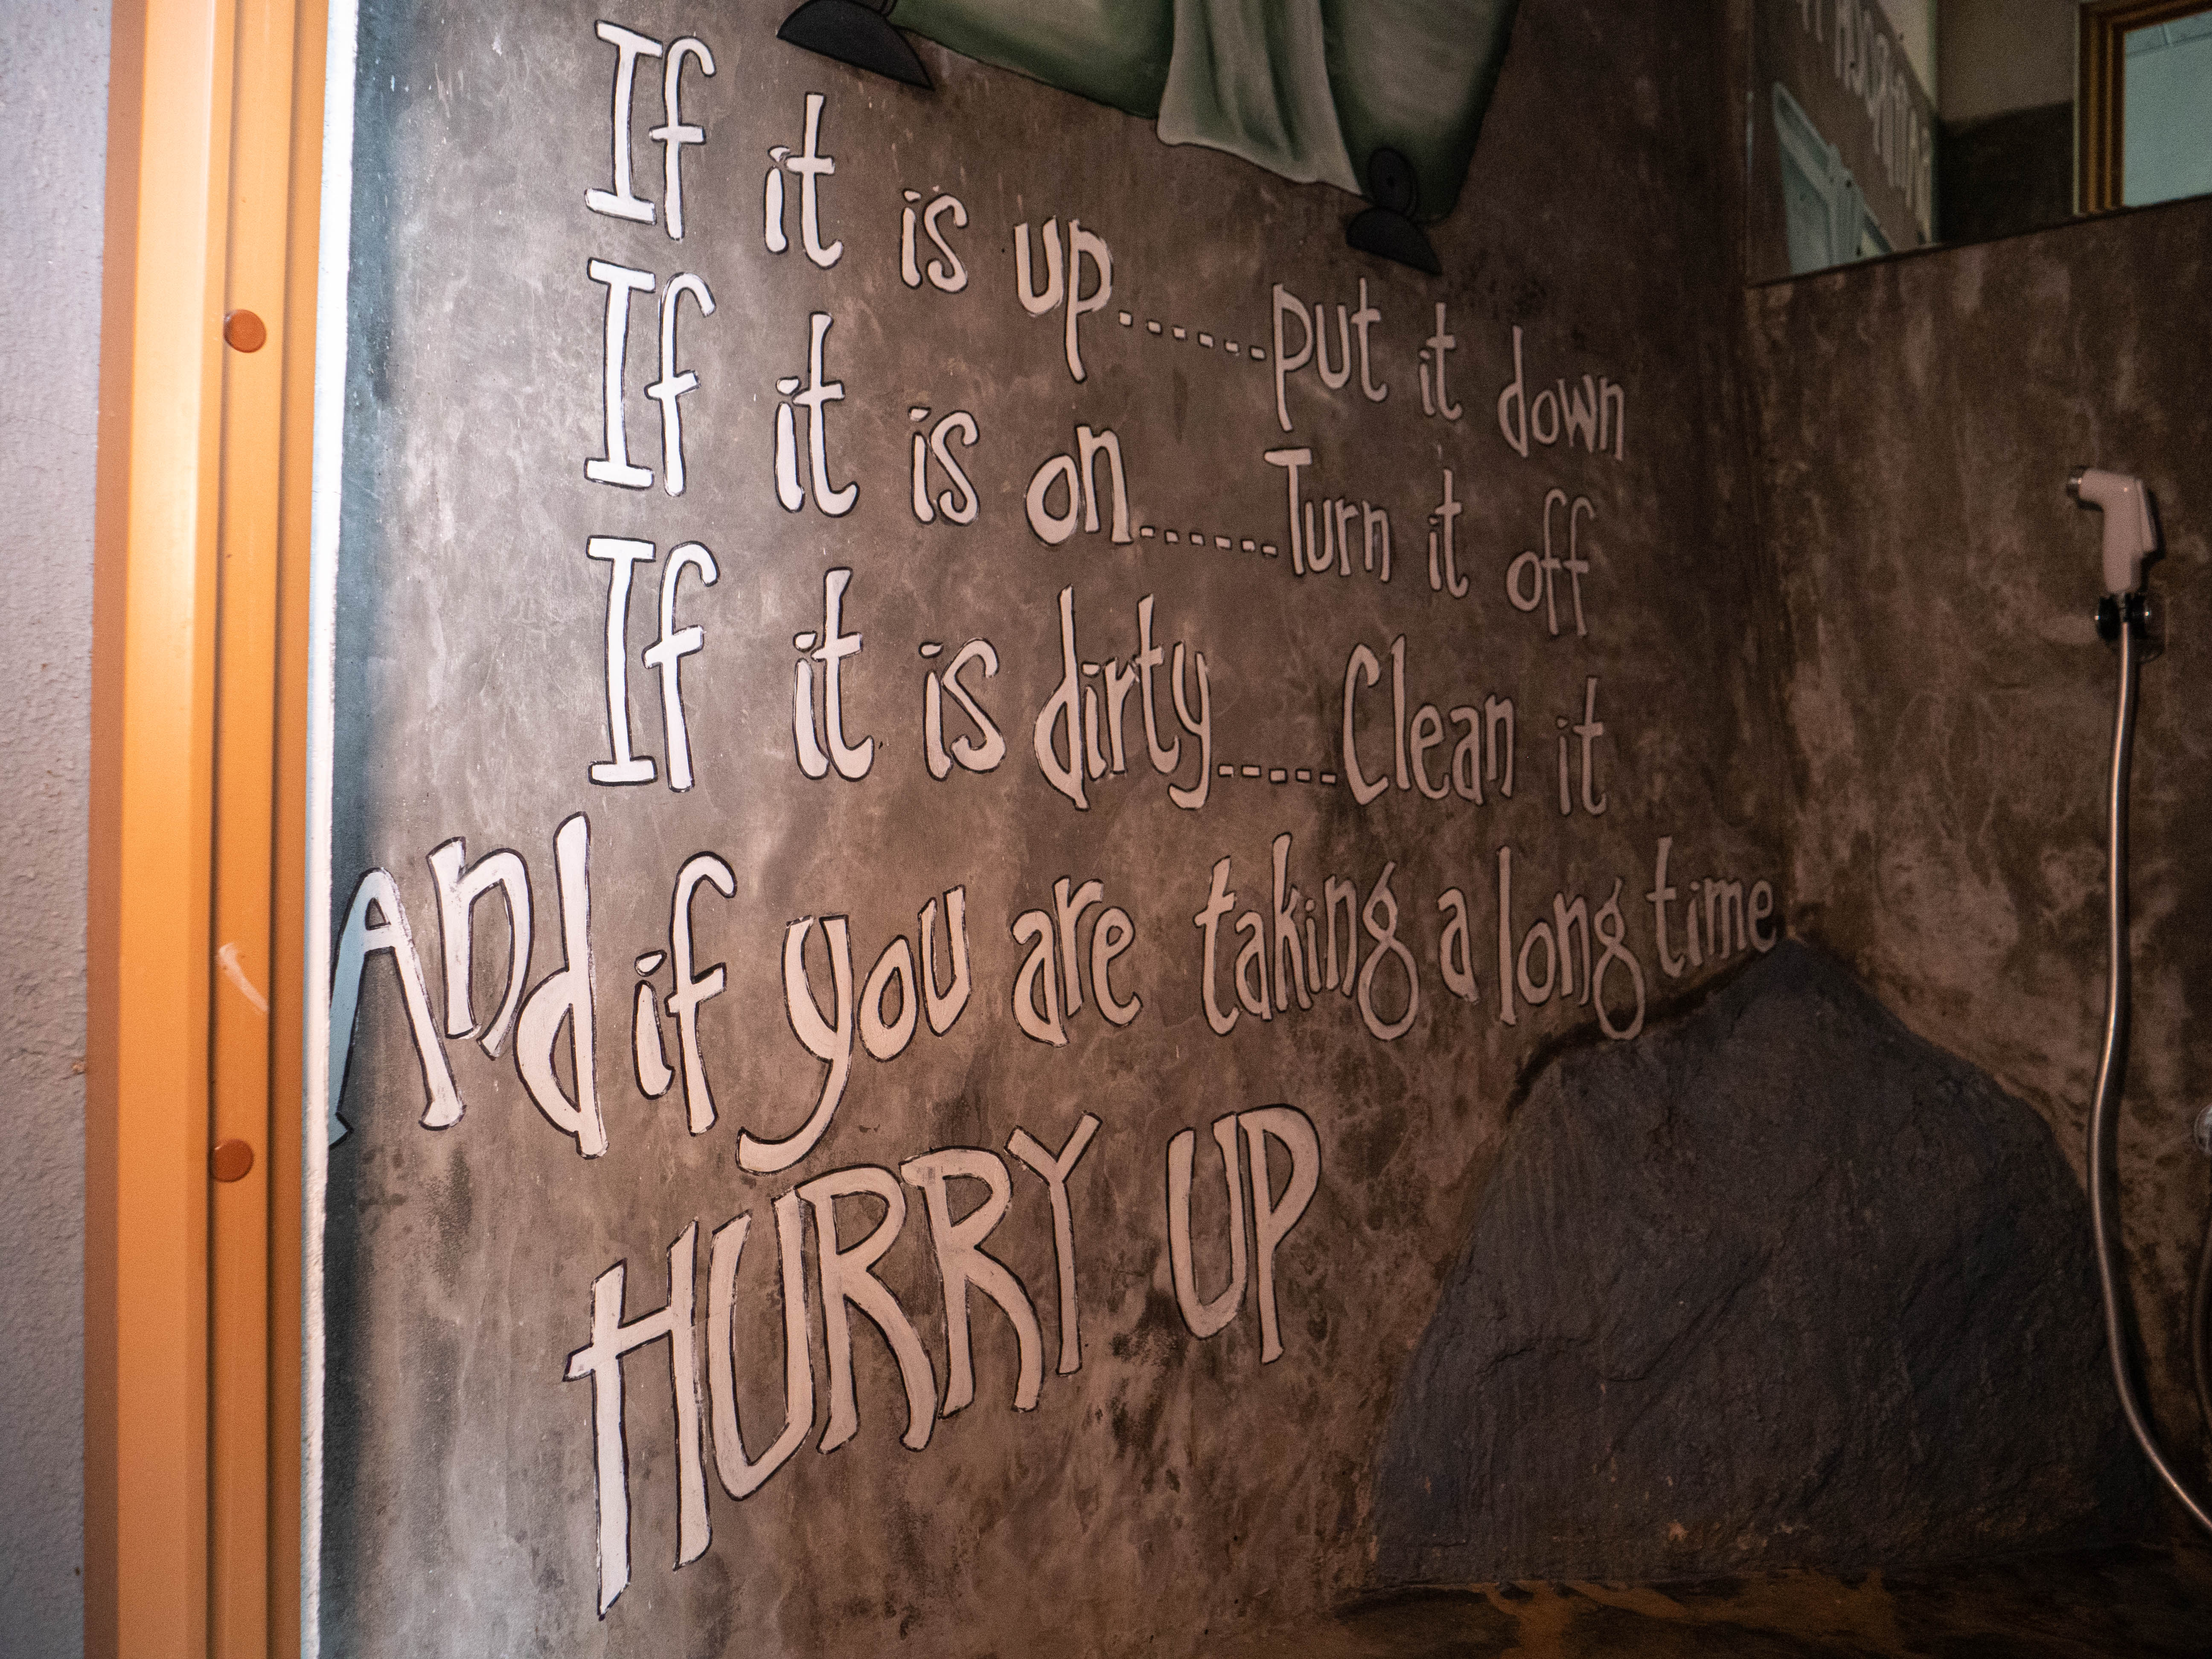 If it is up......put it down
If it is on......Turn it off
If it is dirty.....Clean it
And if you are taking a long time
HURRY UP